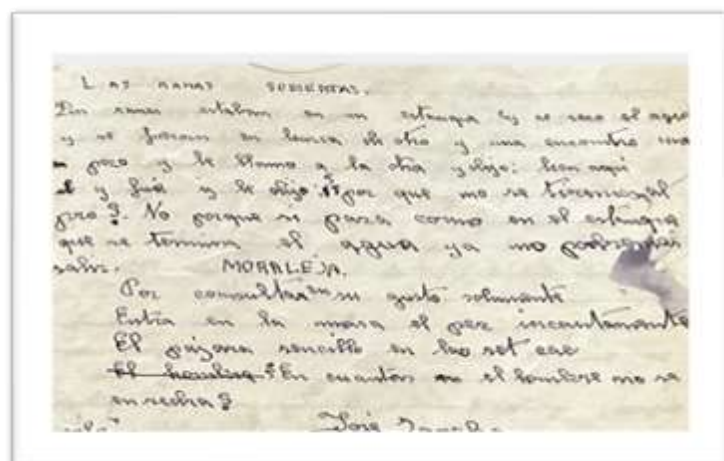 LAS RANAS SEDIENTAS.
Dos ranas estaban en un estanque y se seco el agua
y se fueron en busca de otro y una encontro
pozo y le llamo a la otra y dijo: aqui
y fué y le dijo: por que no se al
pozo?. No porque si pasa como en el estanque
que se termina el agua ya no podremos
salir. MORALEJA.
Por consultar su gusto solamente
Entra en la nasa el pez incautamente
El pájaro sencillo en la red cae
El hombre? En cuantos el hombre no se
enreda?
José